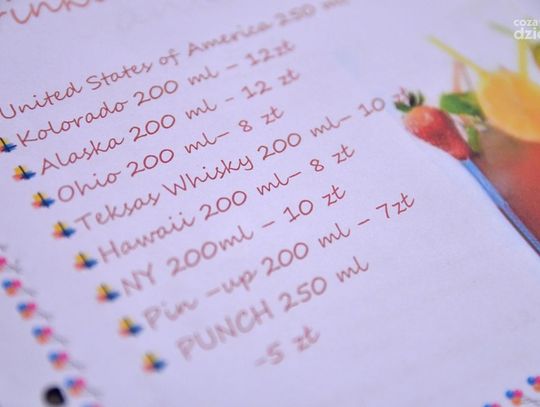 coza
dzie
United States of America 250 ml
Kolorado 200 ml - 12zł
Alaska 200 ml - 12 zł
Ohio 200 ml- 8 zł
Teksas Whisky 200 ml- 10 zł
Hawaii 200 ml- 8 zł
NY 200ml - 10 zł
Pin -up 200 ml - 7zł
PUNCH 250 ml
-5 zł